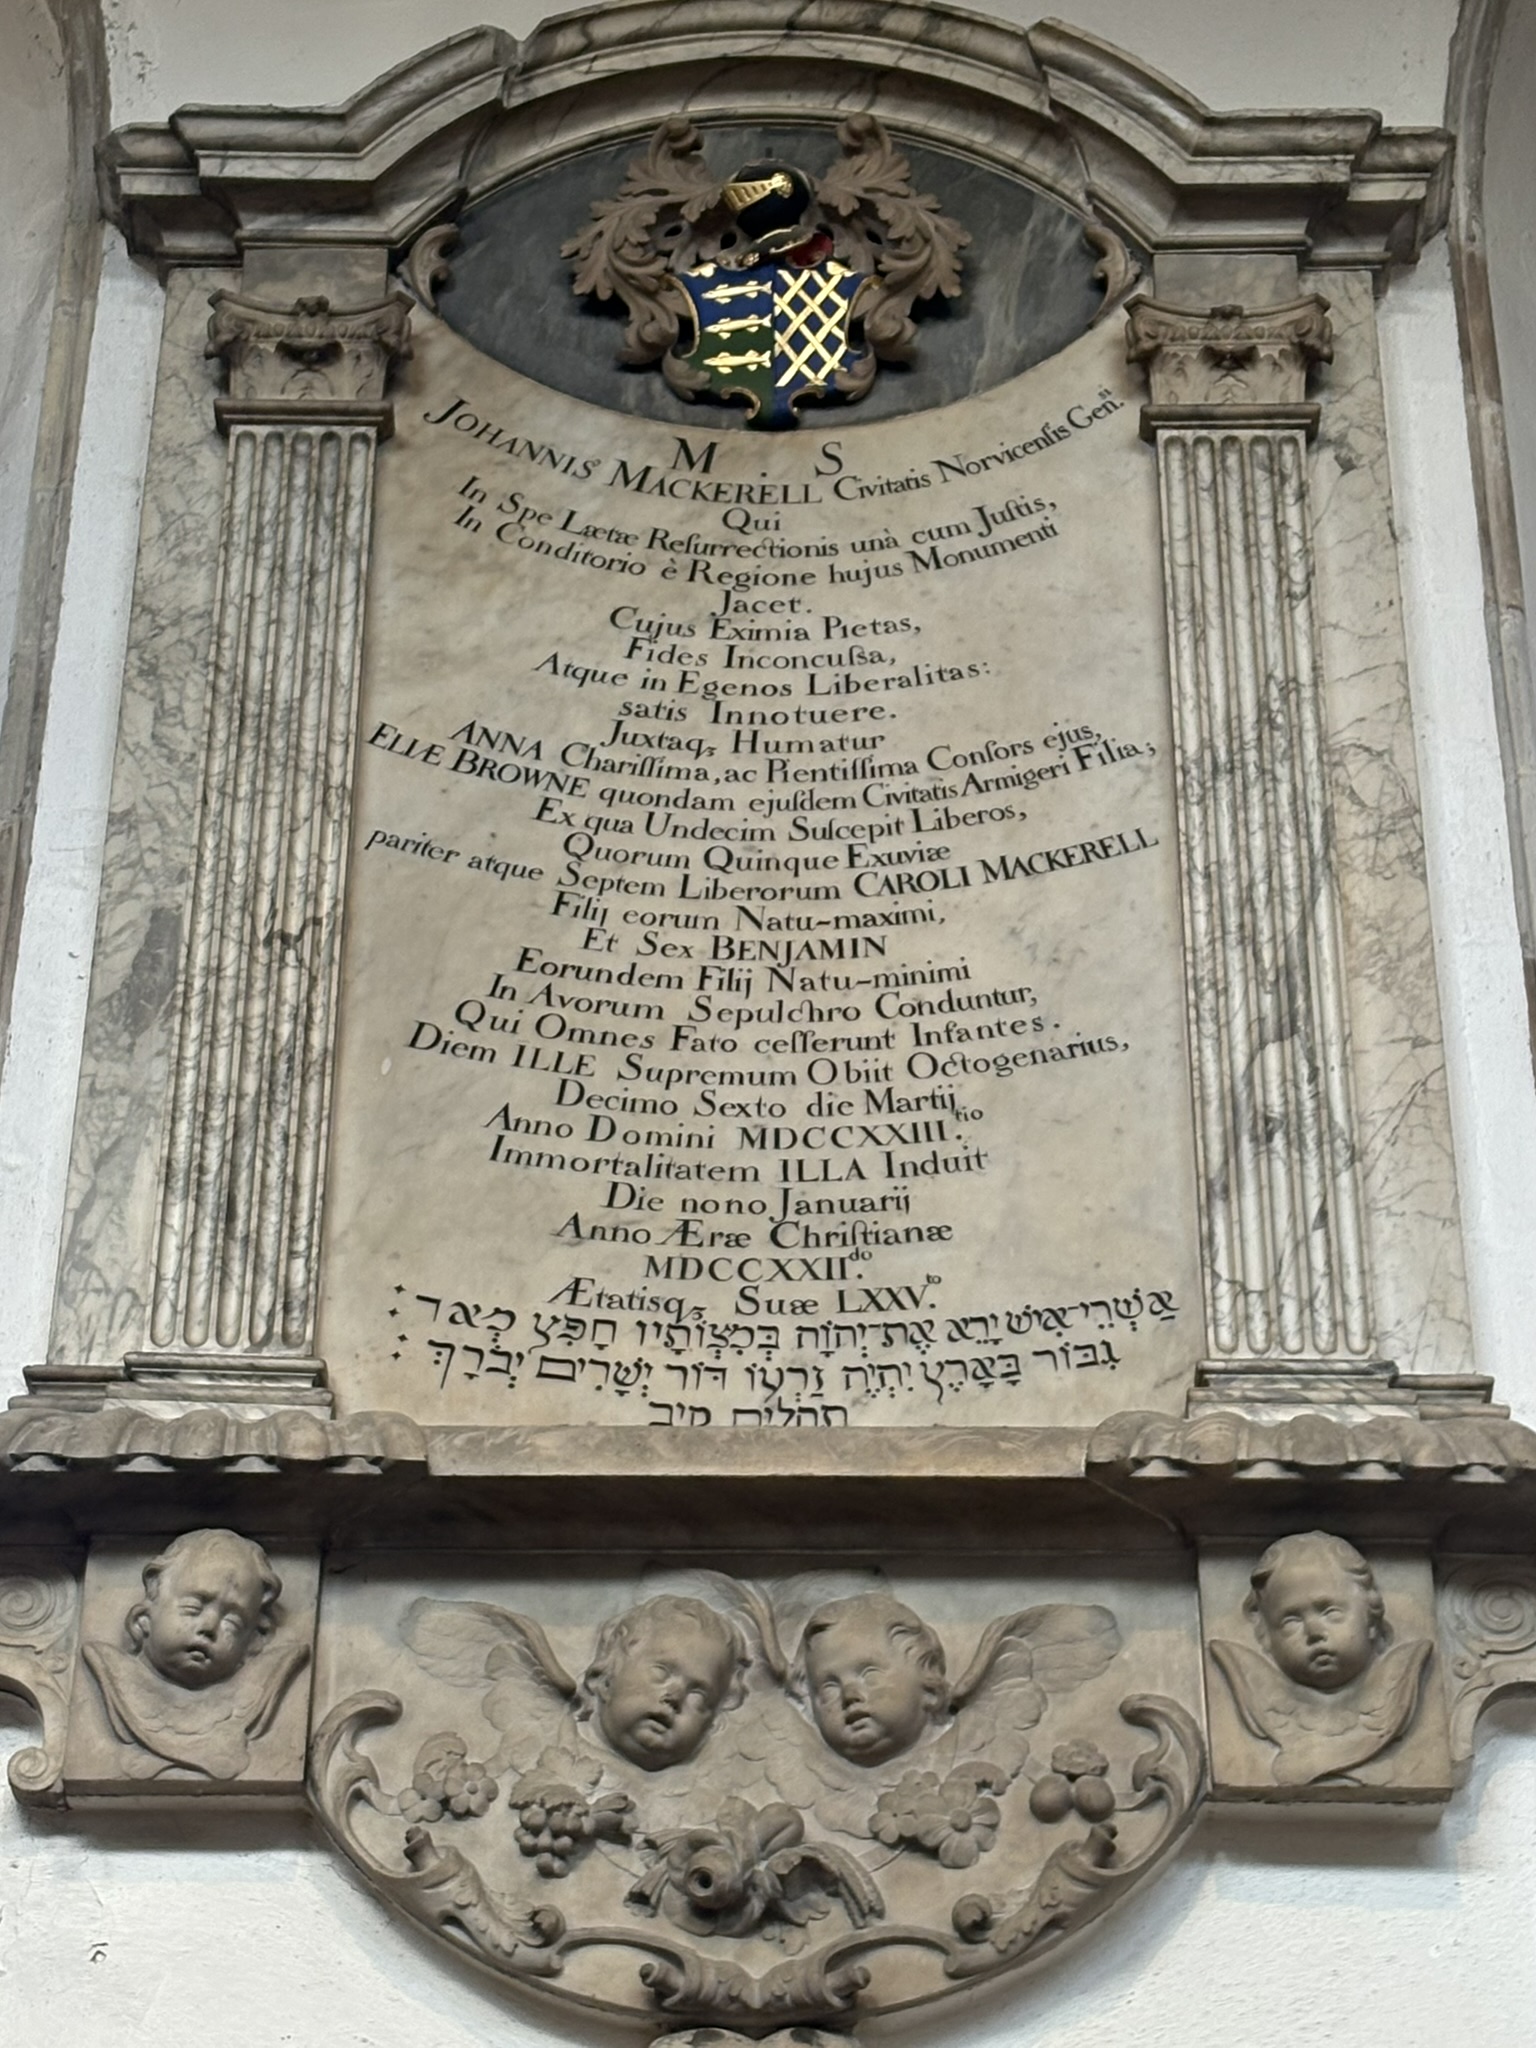 M . S
JOHANNIS MACKERELL Civitatis Norvicenſis Gen.si
Qui
In Spe Lætæ Reſurrectionis unà cum Juſtis,
In Conditorio è Regione hujus Monumenti
Jacet.
Cujus Eximia Pietas,
Fides Inconcuſsa,
Atque in Egenos Liberalitas:
satis Innotuere.
Juxtaqꝫ Humatur
ANNA Chariſſima, ac Pientiſſima Conſors ejus,
ELIÆ BROWNE quondam ejuſdem Civitatis Armigeri Filia;
Ex qua Undecim Suſcepit Liberos,
Quorum Quinque Exuviæ
pariter atque Septem Liberorum CAROLI MACKERELL
Filij eorum Natu-maximi,
Et Sex BENJAMIN
Eorundem Filij Natu-minimi
In Avorum Sepulchro Conduntur,
Qui Omnes Fato ceſſerunt Infantes.
Diem ILLE Supremum Obiit Octogenarius,
Decimo Sexto die Martij
Anno Domini MDCCXXIII.tio
Immortalitatem ILLA Induit
Die nono Januarij
Anno Æræ Chriſtianæ
MDCCXXII.do
Ætatisqꝫ Suæ LXXV.to
אַשְׁרֵי־אִישׁ יָרֵא אֶת־יְהוָה בְּמִצְוֹתָיו חָפֵץ מְאֹד׃
גִּבּוֹר בָּאָרֶץ יִהְיֶה זַרְעוֹ דּוֹר יְשָׁרִים יְבֹרָךְ׃
תהלים קיב